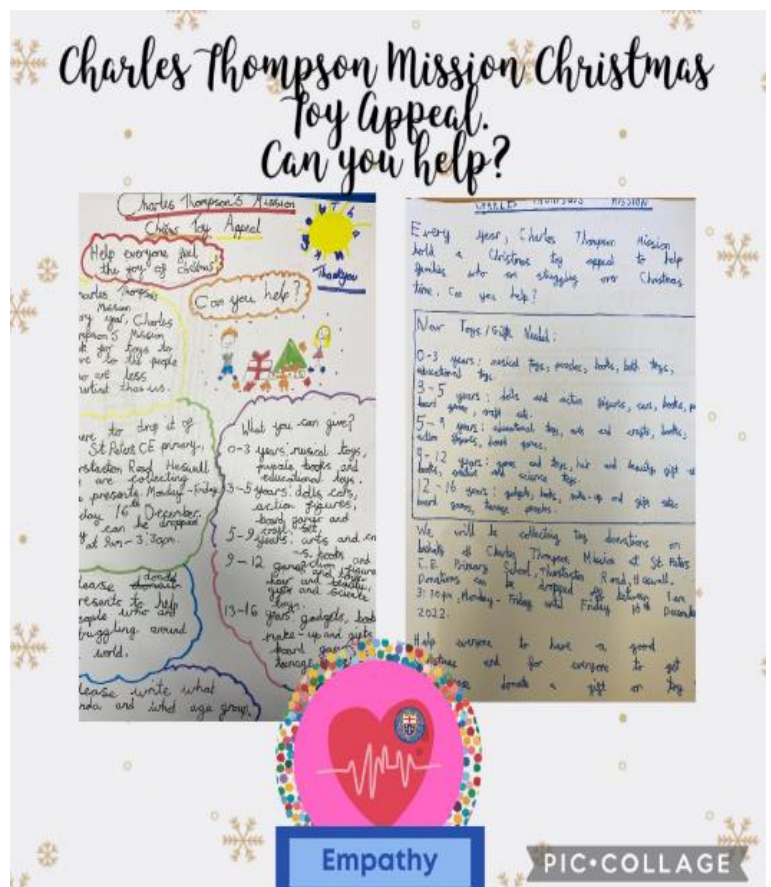 Charles Thompson Mission Christmas
Toy Appeal.
Can you help?
Charles Thompson's Mission
Toy Appeal
Help everyone feel
the joy of
Thankyou
Can you help?
Charles
Mission
year, Charles
Mission
for toys to
to people
are less
than us.
to drop it of
St Peters CE primary,
Road Heswall
are collecting
presents, Monday - Friday
16th December.
can be dropped
at 8am - 3:30pm.
donate
to help
who are
struggling around
world.
write what
and what age group.
What you can give?
0-3 years: musical toys,
books and
educational toys.
3-5 years: dolls, cars,
action figures,
board games and
craft set,
5-9 years: arts and
books
9-12 games and
hair and
gifts and science
toys.
13-16 years gadgets, books
make-up and gifts
board games
teenage
CHARLES THOMPSON'S MISSION
Every year, Charles Thompson Mission
hold a Christmas toy appeal to help
families who are struggling over Christmas
time. Can you help?
New Toys/Gifts Needed:
0-3 years: musical toys, puzzles, books, bath toys,
educational toys.
3-5 years: dolls and action figures, cars, books,
board games, craft sets.
5-9 years: educational toys, arts and crafts, books,
action figures, board games.
9-12 years: games and toys, hair and beauty, gift
books, creative and science toys.
12-16 years: gadgets, books, make-up and gift sets,
board games, teenage
We will be collecting toy donations on
behalf of Charles Thompson Mission at St Peters
C.E. Primary School, Thurstaston Road, Heswall.
Donations can be dropped off between
3:30pm, Monday - Friday until Friday 16th December
2022.
Help everyone to have a good
and for everyone to get
donate a gift or toy
Empathy
PIC•COLLAGE